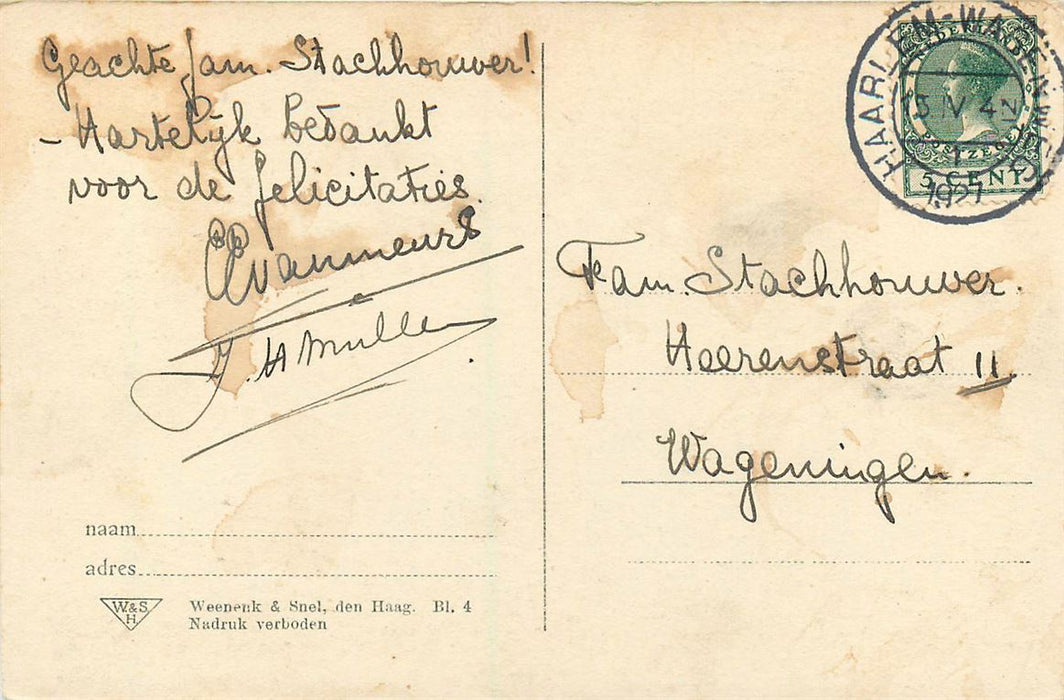 Geachte fam. Stachhouwer!
- Hartelijk bedankt
voor de felicitaties.
vanmeurs
J. H Muller
naam
adres
W&S
H.
Weenenk & Snel, den Haag. Bl. 4
Nadruk verboden
NEDERLAND
POSTZEGEL
5 CENT
HAARLEM-WAGENINGEN
13 IV 4N
1
1927
Fam. Stachhouwer.
Heerenstraat 11.
Wageningen.